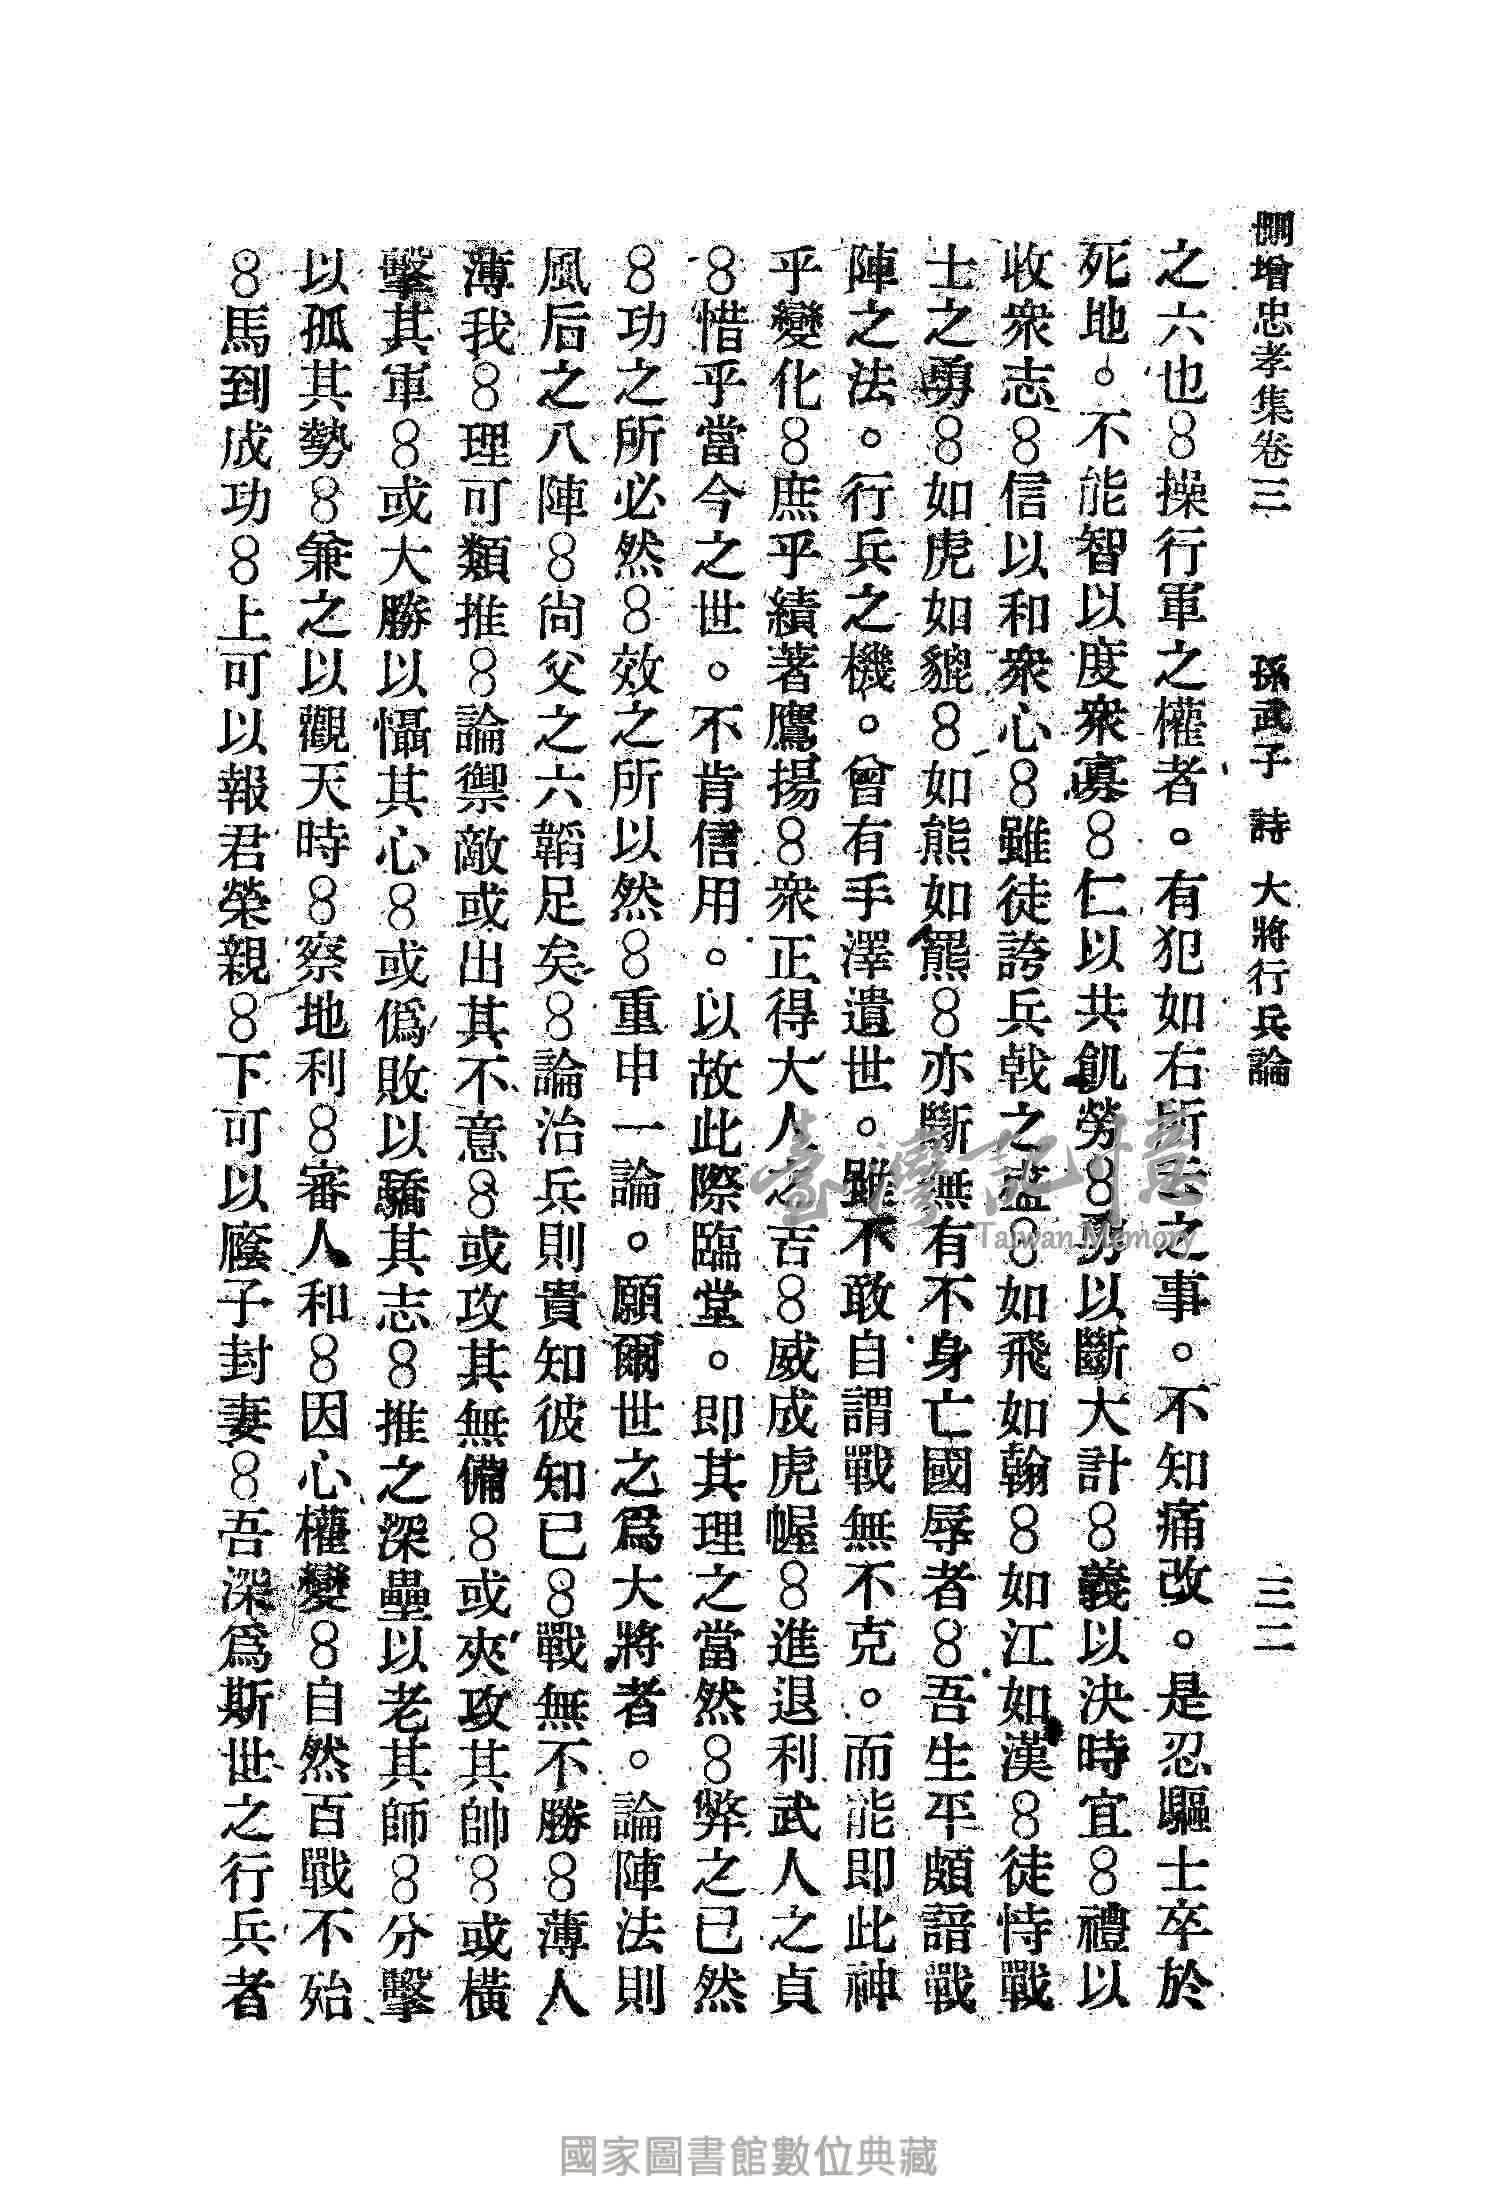 刪增忠孝集卷三　孫武子　詩　大將行兵論　三二
之六也。。操行軍之權者。有犯如右所云之事。不知痛改。是忍驅士卒於
死地。不能智以度衆寡。。仁以共飢勞。。勇以斷大計。。義以決時宜。。禮以
收衆志。。信以和衆心。。雖徒誇兵戟之盛。。如飛如翰。。如江如漢。。徒恃戰
士之勇。。如虎如貔。。如熊如羆。。亦斷無有不身亡國辱者。。吾生平頗諳戰
陣之法。行兵之機。曾有手澤遺世。雖不敢自謂戰無不克。而能即此神
乎變化。。庶乎績著鷹揚。。衆正得大人之吉。。威成虎幄。。進退利武人之貞
。。惜乎當今之世。不肯信用。以故此際臨堂。即其理之當然。。弊之已然
。。功之所必然。。效之所以然。。重申一論。願爾世之爲大將者。論陣法則
風后之八陣。。尙父之六韜足矣。。論治兵則貴知彼知已。。戰無不勝。。薄人
薄我。。理可類推。。論禦敵或出其不意。。或攻其無備。。或夾攻其帥。。或橫
擊其軍。。或大勝以懾其心。。或僞敗以驕其志。。推之深壘以老其師。。分擊
以孤其勢。。兼之以觀天時。。察地利。。審人和。。因心權變。。自然百戰不殆
。。馬到成功。。上可以報君榮親。。下可以廕子封妻。。吾深爲斯世之行兵者
臺灣記憶
Taiwan Memory
國家圖書館數位典藏